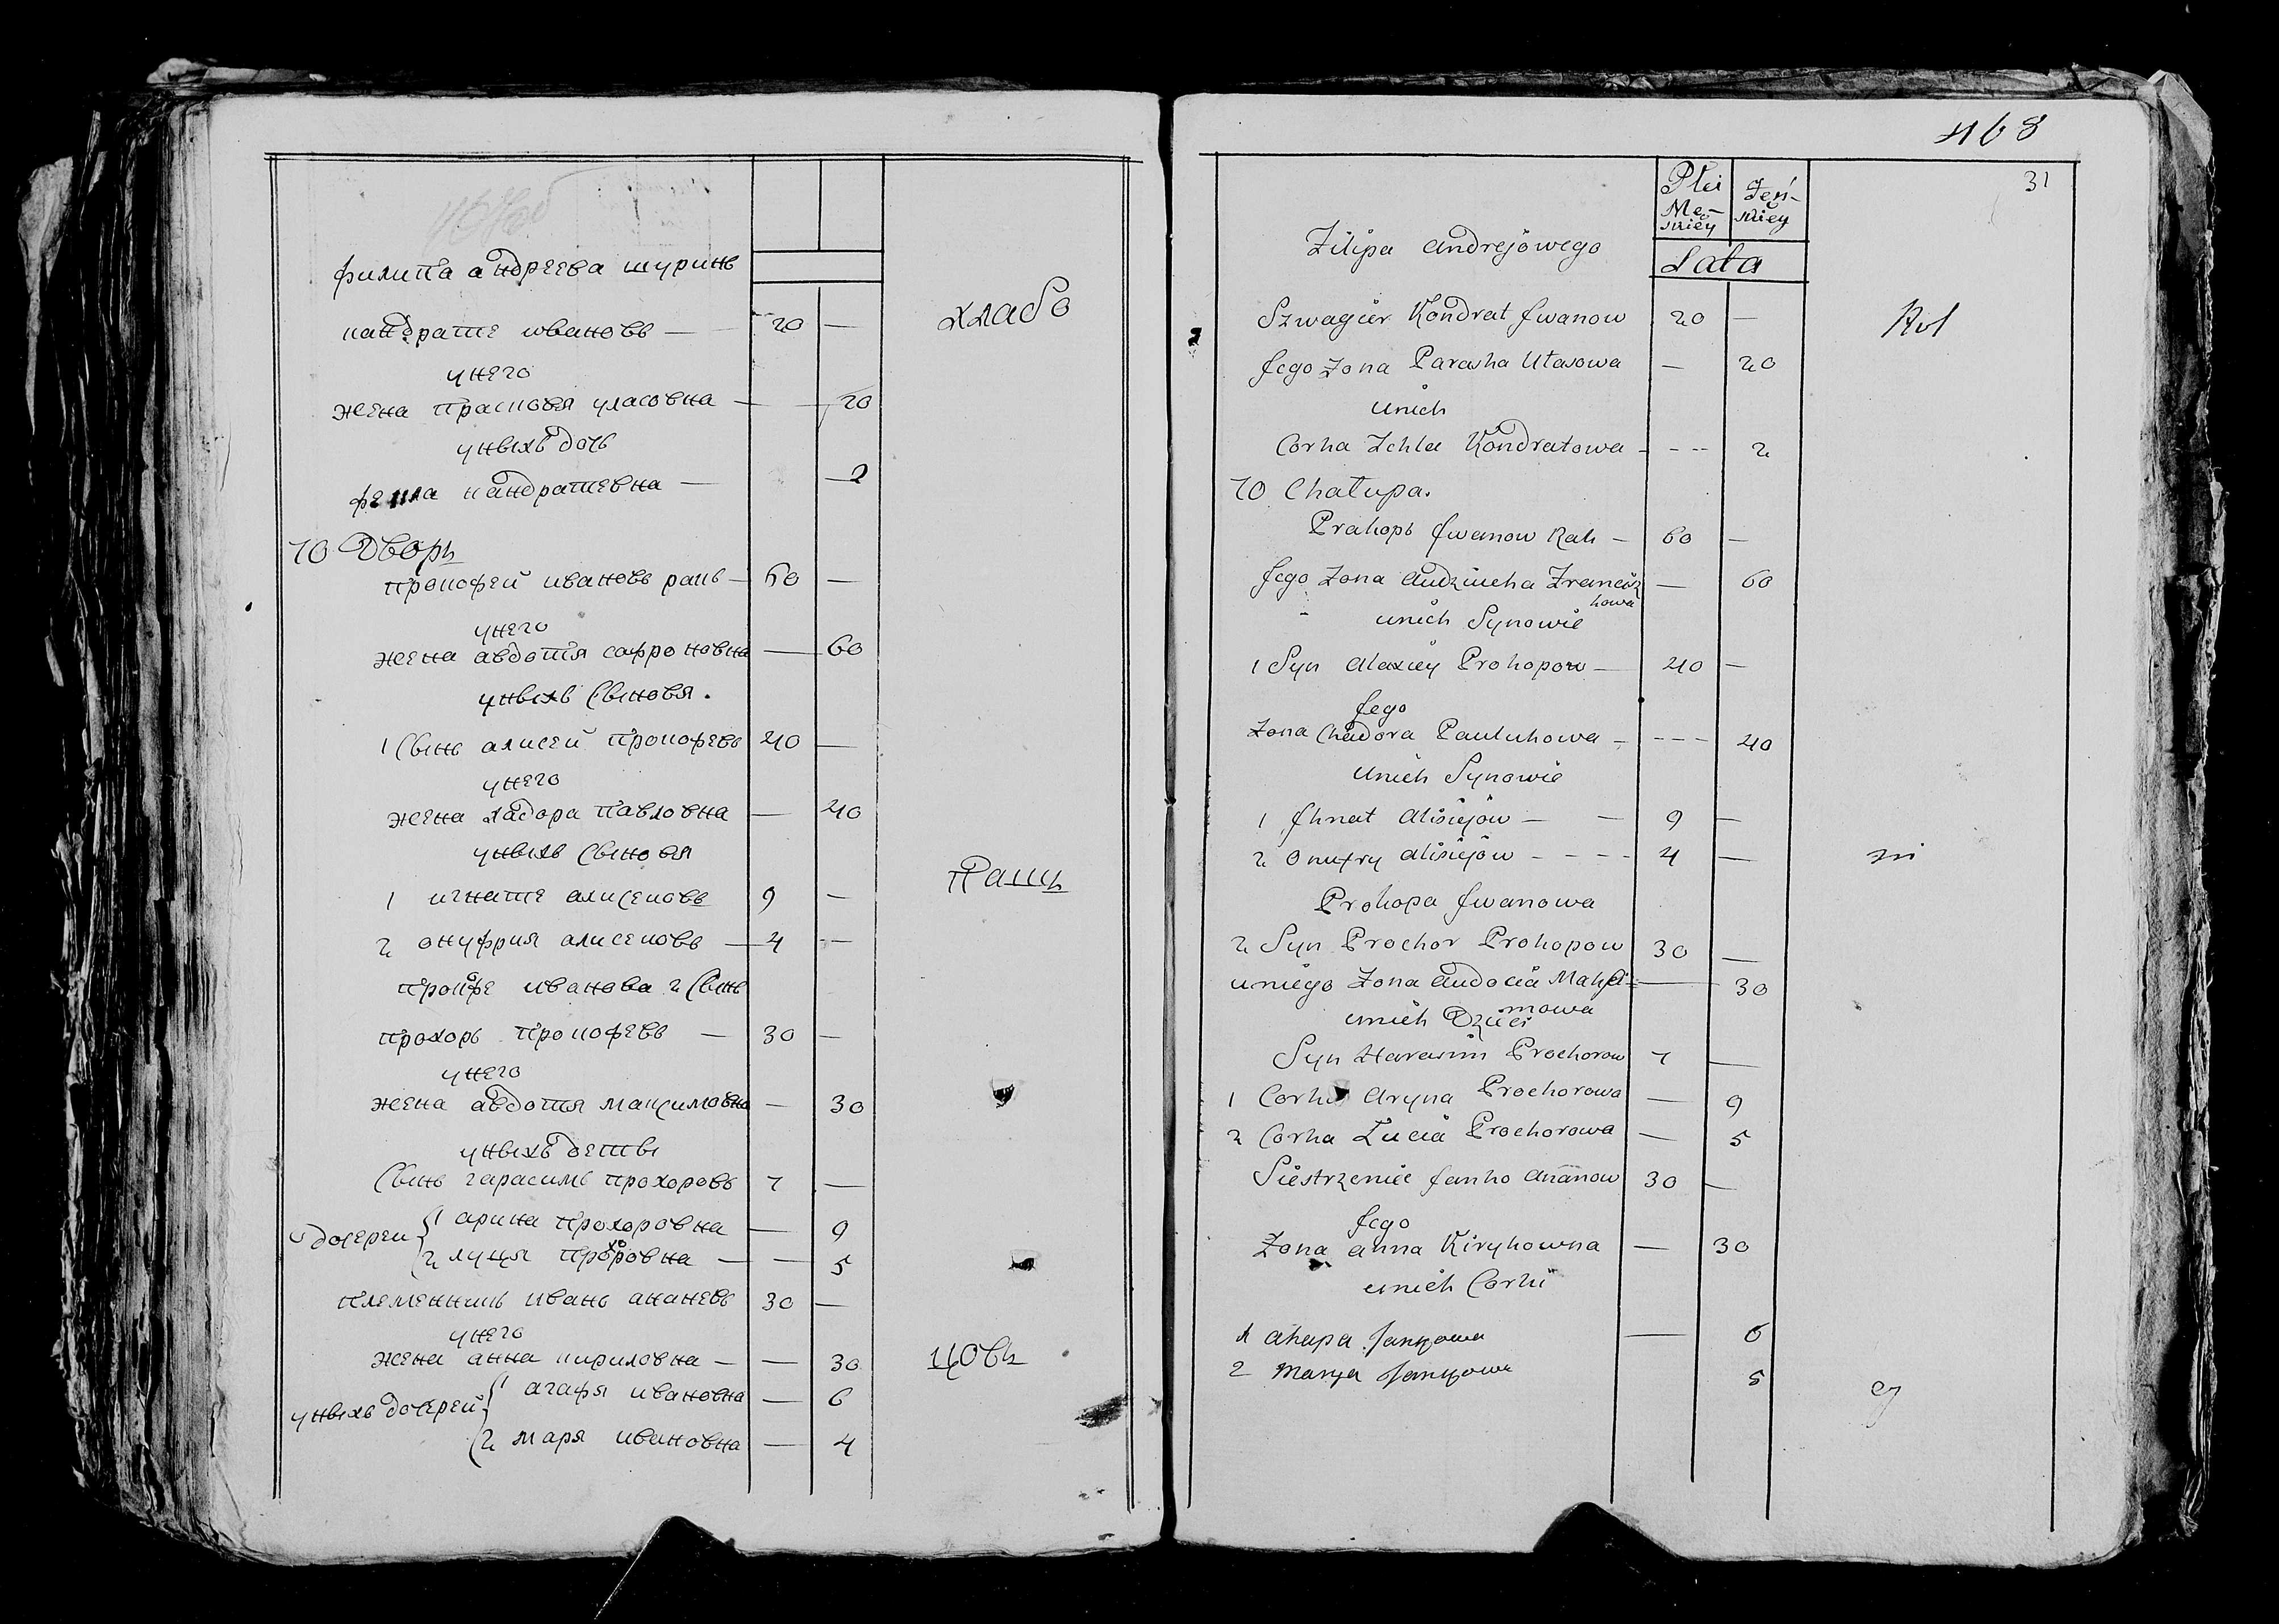 филипа андреева шуринъ
кандрате ивановъ — 20 —
унего
жена прасковя уласовна — 20
уныхъ дочь
фекла кандратевна — 2
хлабо
10 Дворъ
прокофей ивановъ ракъ — 60 —
унего
жена авдотя сафроновна — 60
уныхъ сыновя.
1 Сынъ алисей прокофевъ 40 —
унего
жена хадора павловна — 40
уныхъ сыновя
1 игнате алисеиовъ 9 —
2 онуфрия алисеиовъ — 4 —
пашъ
прокофе иванова 2 Сынъ
прохоръ прокофевъ — 30 —
унего
жена авдотя максимовна — 30
унихъ дети
Сынъ гарасимъ прохоровъ 7 —
дочерей { 1 арина прохоровна — 9
2 луця прохоровна — — 5
племенникъ иванъ ананевъ 30 —
унего
жена анна кириловна — — 30
цовъ
унихъ дочерей { 1 агафя ивановна — 6
2 маря ивановна — 4
468
31
Płci Mę-skiey Żeń-skiey
Lata
Filipa Andrejowego
Szwagier Kondrat Iwanow 20 —
Jego Żona Paraska Ułasowa — 20
unich
Corka Fekla Kondratowa - - - - 2
Rol
10 Chałupa.
Prakopъ Iwanow Rak — 60 —
Jego Żona Audziucha Franciszkowa — 60
unich Synowie
1 Syn Alaxiey Prokopow — 40 —
Jego
Żona Chadora Paulukowa - - - - 40
Unich Synowie
1 Ihnat Alisiejow — — 9 —
2 Onufry Alisiejow - - - - 4 —
ni
Prokopa Iwanowa
2 Syn Prochor Prokopow 30 —
uniego Żona Audocia Maksimowa — 30
unich Dzieci
Syn Harasim Prochorow 7 —
1 Corka Aryna Prochorowa — 9
2 Corka Łucia Prochorowa — 5
Siestrzeniec Janko Ananow 30 —
Jego
Żona Anna Kirykowna — 30
unich Corki
1 Ahapa Jankowa — 6
2 Marya Jankowa 5
cy